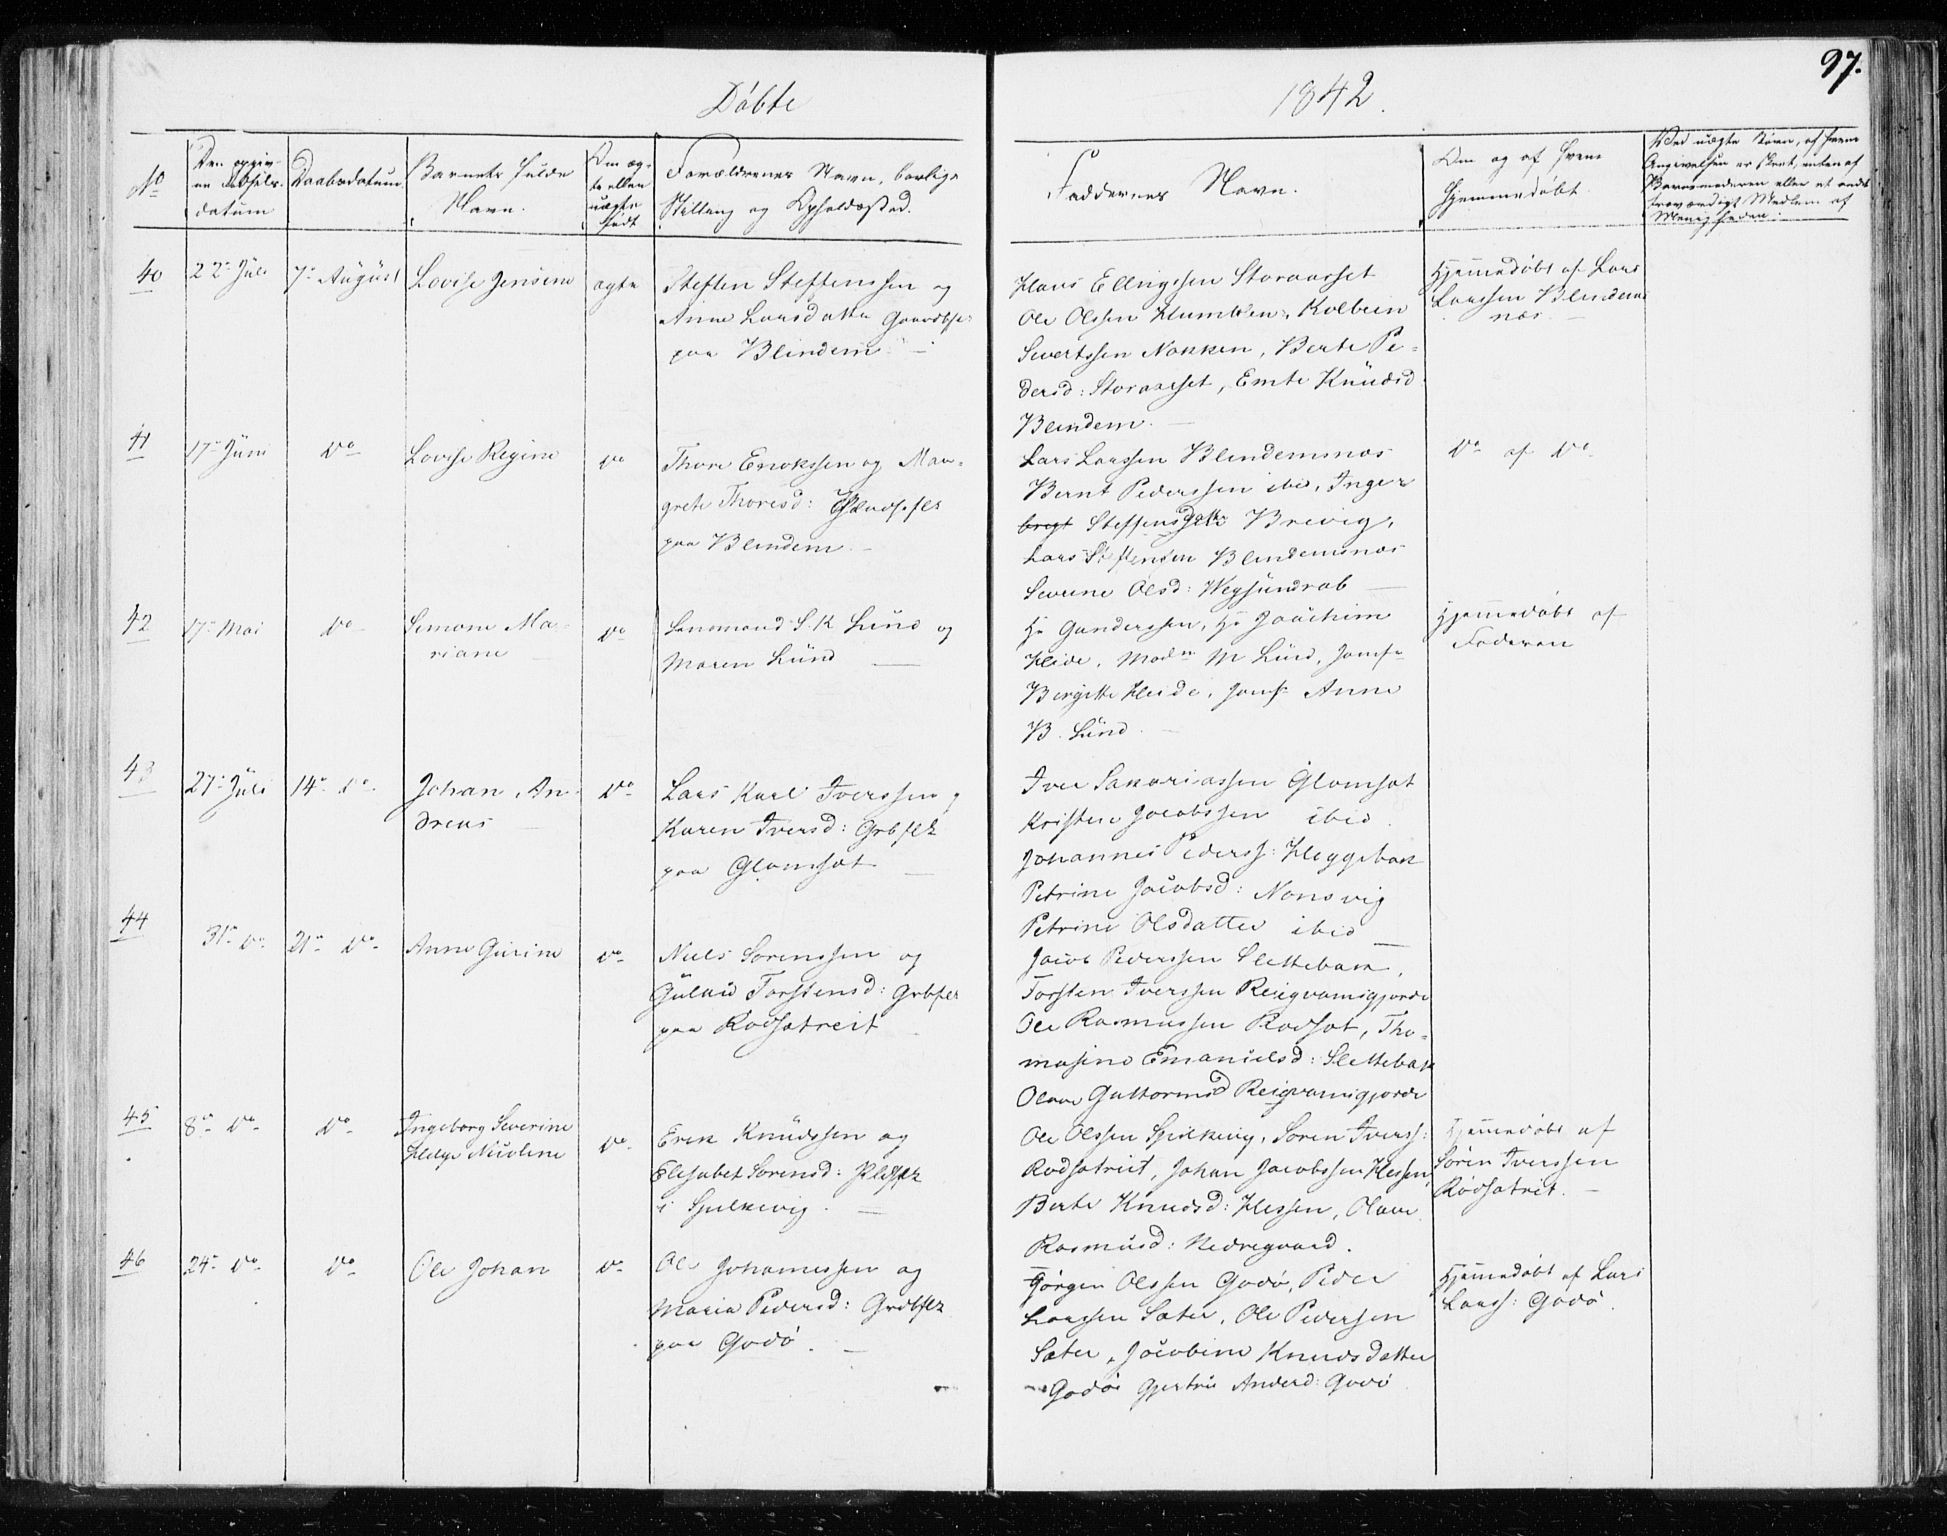 97.
Döbte
1842.
No
Den opgivne Fødselsdatum
Daabsdatum
Barnets fulde Navn.
Om ægte eller uægte født
Forældrenes Navn, borlige Stilling og Opholdssted.
Faddernes Navn.
Om og af hvem hjemmedøbt.
Ved uægte Børn, af hvem Angivelsen er skeet, enten af Barnemoderen eller et andet troværdigt Medlem af Menigheden.
40
22de Juli
7de August
Lovise Jensine
ægte
Steffen Steffenssen og
Anne Larsdatter Gaardbr:
paa Blindem
Hans Ellingssen Storaasset
Ole Olssen Humblen, Kolbein
Sivertssen Nakken, Berte Pe-
dersd: Storaasset, Emte Knudsd
Blindem.
Hjemmedøbt af Lars
Larssen Blindems
næs
41
17de Juni
do
Lovise Regine
do
Thore Enokssen og Mar-
grete Thoresd:
paa Blindem
Lars Larssen Blindemsnæs
Bernt Pederssen ibid, Inger
bregt Steffensdatter Brevig,
Lars Steffensen Blindemsnæs
Severine Olsd: Wegsundrab
do af do
42
17de Mai
do
Simone Ma-
riane
do
Lensmand S. K Lund og
Maren Lund
Hr Gunderssen, Hr Joachim
Heide, Madm M Lund, Jomfr
Birgitte Heide, Jomfr Anne
B. Lund
Hjemmedøbt af
Faderen
43
27de Juli
14de do
Johan An-
dreas
do
Lars Karl Iverssen og
Karen Iversd: Grbflk
paa Glomsæt
Iver Sakariassen Glomsæt
Kristen Jacobssen ibid.
Johannes Pederss: Heggebak
Petrine Jacobsd: Nonsvig
Petrine Olsdatter ibid
44
31te do
21de do
Anne Gurine
do
Niels Sørenssen og
Gulau Torstensd: Grbflk
paa Rødsætreit
Jacob Pederssen Slettebak,
Torsten Iverssen Reigvamsgjerde
Ole Rasmussen Rødsæt, Tho-
masine Emanuelsd: Slettebak
Olave Guttormsd Reigvamsgjerde
45
8de do
do
Ingeborg Severine
Helge Nicoline
do
Erik Knudssen og
Elisabet Sørensd: Pldsflk
i Spilkevig.
Ole Olssen Spilkevig, Søren Iverss:
Rødsætreit, Johan Jacobssen Hessen,
Berte Knudsd: Hessen, Olave
Rasmusd: Nedregaard.
Hjemmedøbt af
Søren Iverssen
Rødsætreit.
46
24de do
do
Ole Johan
do
Ole Johannessen og
Maria Pedersd: Grdbflk
paa Godø.
Jørgen Olssen Godø, Peder
Larssen Sæter, Ole Pedersen
Sæter, Jacobine Knudsdatter
Godø Gjertrui Andersd: Godø
Hjemmedøbt af Lars
Larss: Godø.